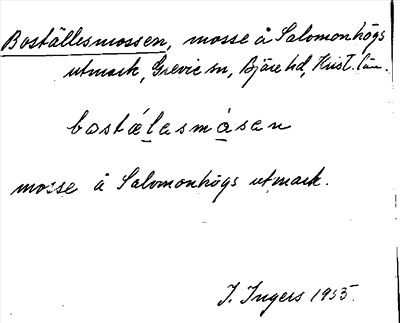 Boställesmossen, mosse å Salomonhögs
utmark, Grevie sn, Bjäre hd, Krist. län.
bostælesmåsen
mosse å Salomonhögs utmark.
I. Ingers 1935.